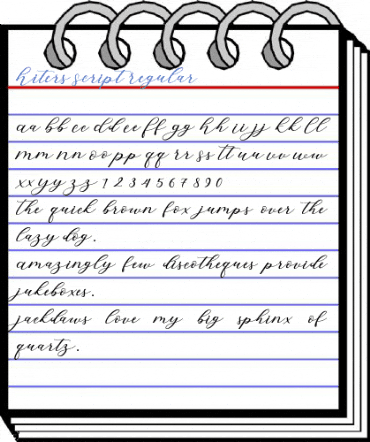 hiters script regular
aa bb cc dd ee ff gg hh ii jj kk ll
mm nn oo pp qq rr ss tt uu vv ww
xx yy zz 1 2 3 4 5 6 7 8 9 0
the quick brown fox jumps over the
lazy dog.
amazingly few discotheques provide
jukeboxes.
jackdaws love my big sphinx of
quartz.